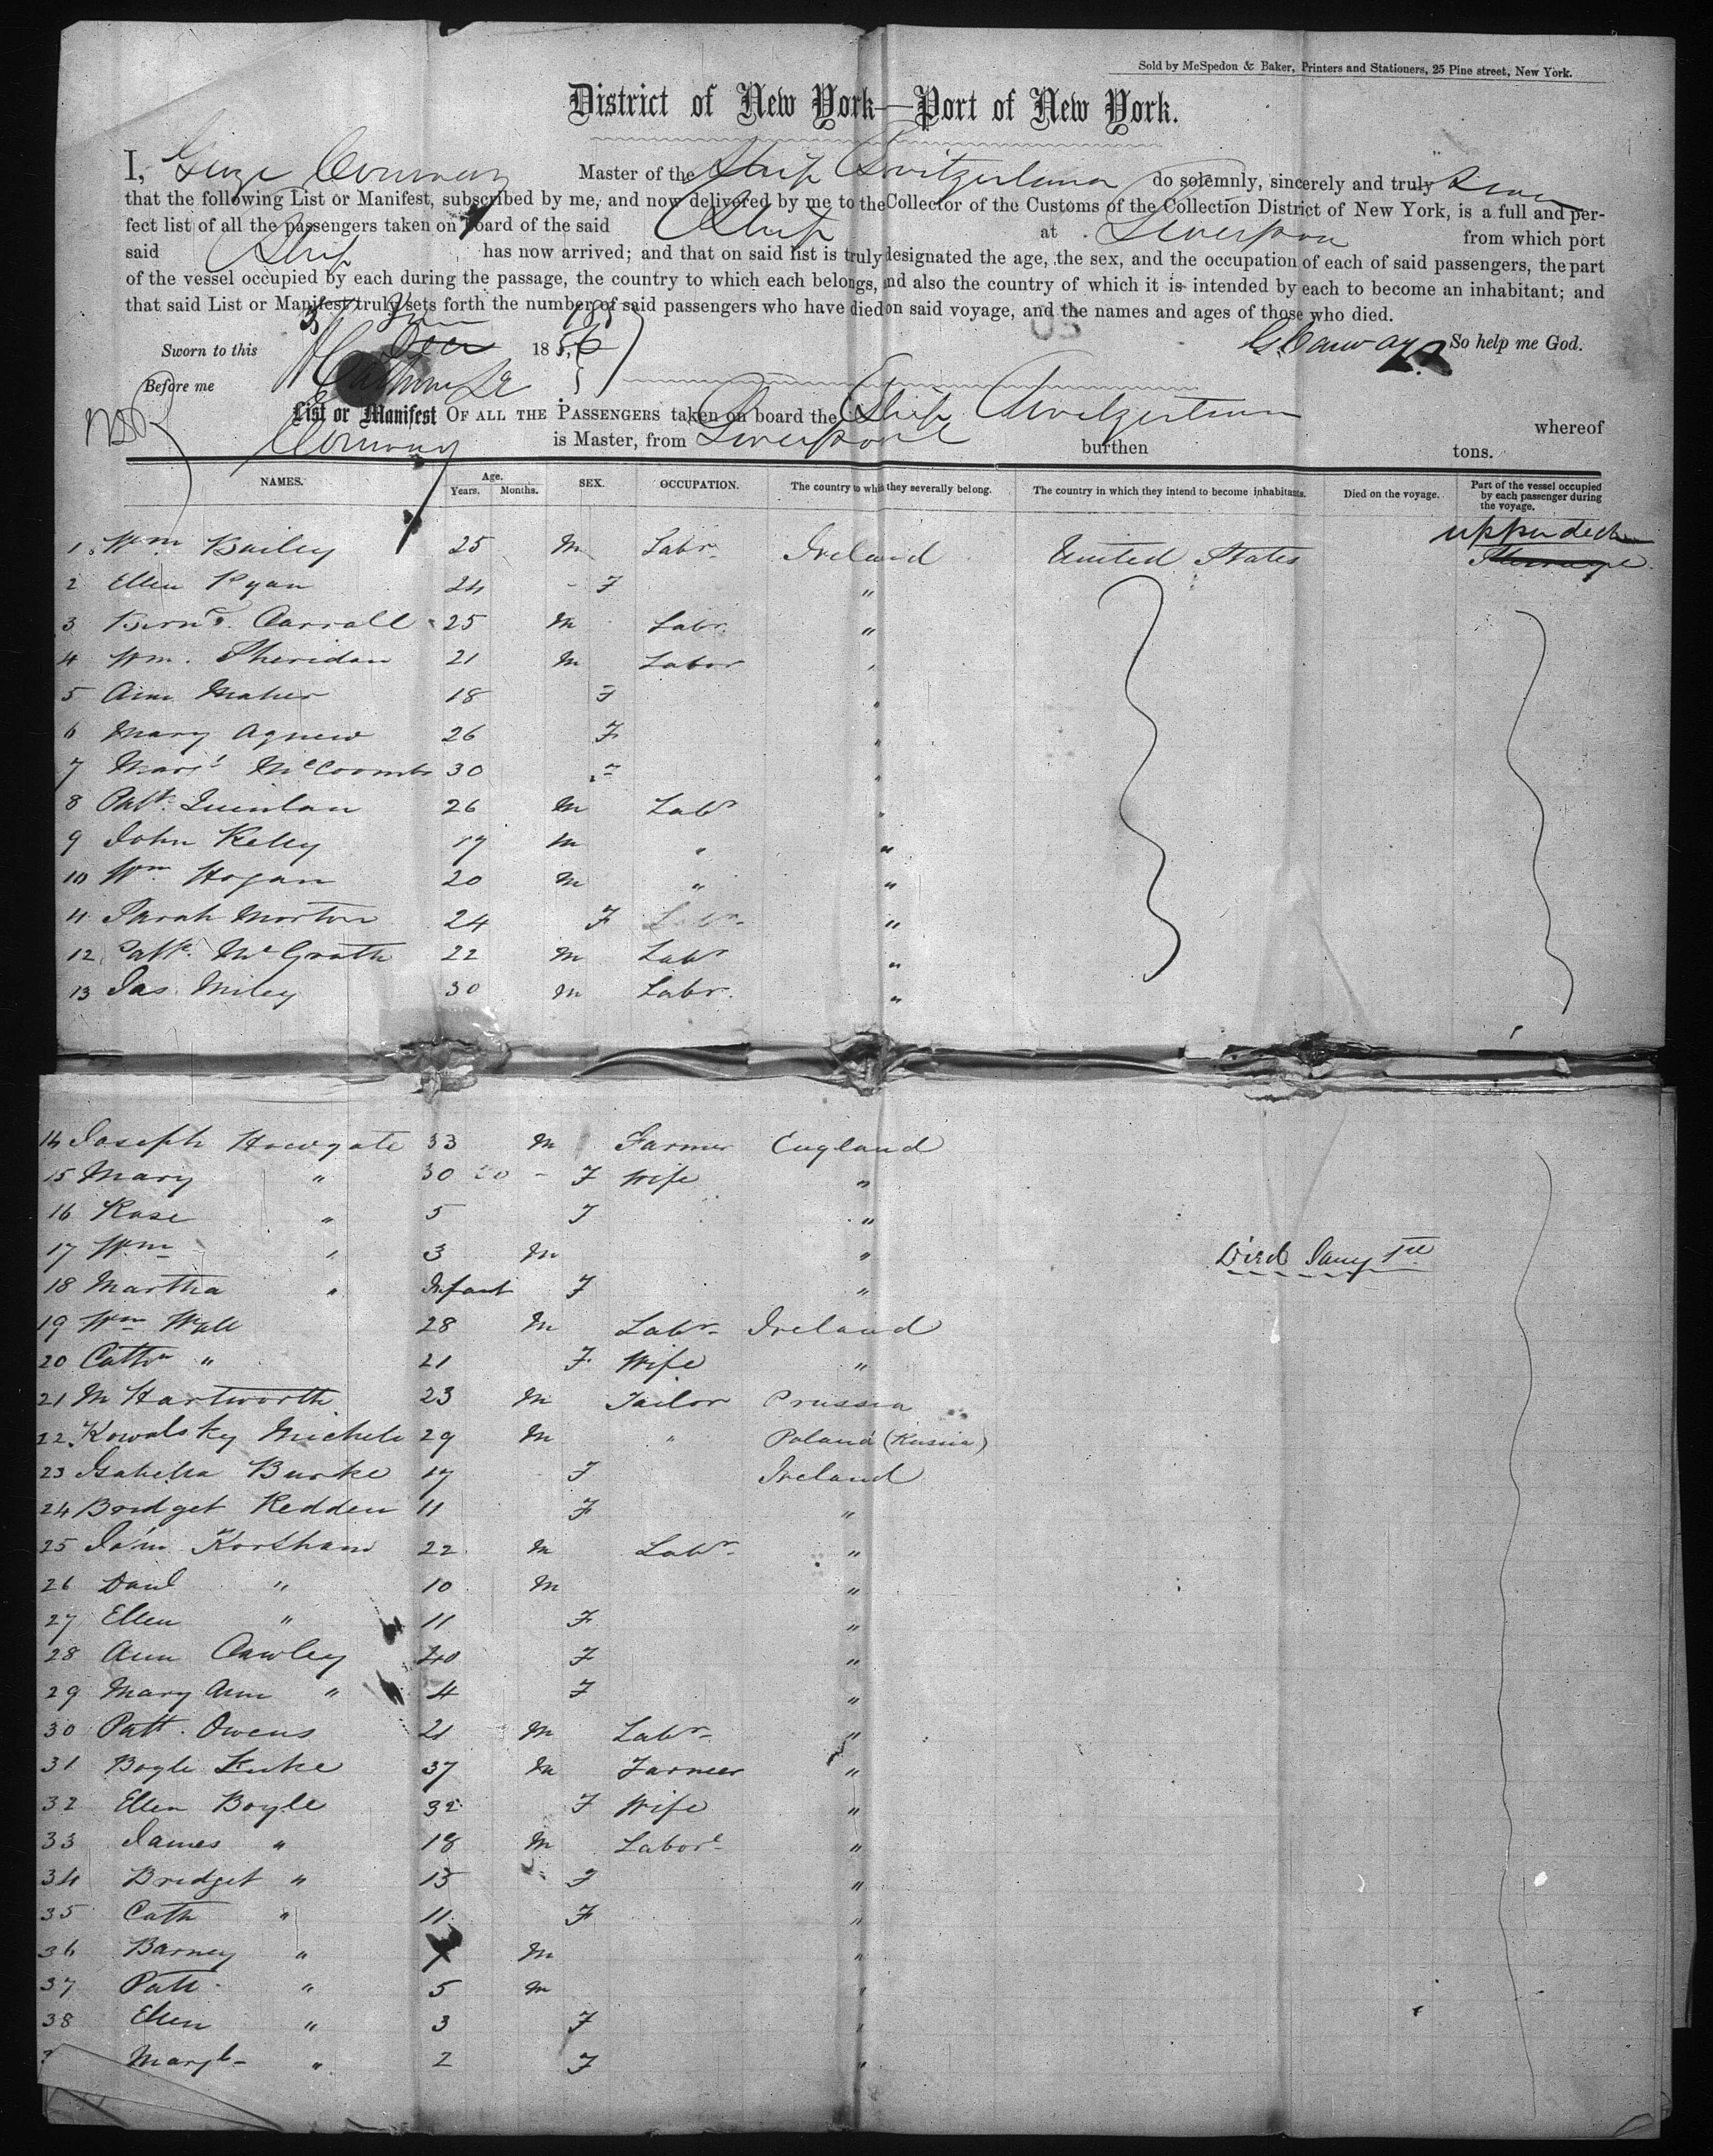 Sold by McSpedon & Baker, Printers and Stationers, 25 Pine street, New York.
District of New York—Port of New York.
I, Conway Master of the Ship Switzerland do solemnly, sincerely and truly Swear
that the following List or Manifest, subscribed by me, and now delivered by me to the Collector of the Customs of the Collection District of New York, is a full and per-
fect list of all the passengers taken on board of the said Ship at Liverpool from which port
said Ship has now arrived; and that on said list is truly designated the age, the sex, and the occupation of each of said passengers, the part
of the vessel occupied by each during the passage, the country to which each belongs, and also the country of which it is intended by each to become an inhabitant; and
that said List or Manifest truly sets forth the number of said passengers who have died on said voyage, and the names and ages of those who died.
Sworn to this 3 1856 G Conway So help me God.
Before me
List or Manifest OF ALL THE PASSENGERS taken on board the Ship Switzerland whereof
Conway is Master, from Liverpool burthen tons.
NAMES. Age. Years. Months. SEX. OCCUPATION. The country to which they severally belong. The country in which they intend to become inhabitants. Died on the voyage. Part of the vessel occupied by each passenger during the voyage.
upper deck
1 Wm Bailey 25 M Labr Ireland United States Steerage
2 Ellen Ryan 24 F "
3 Bernd. Carroll 25 M Labr "
4 Wm. Sheridan 21 M Labor "
5 Ann Maher 18 F "
6 Mary Agnew 26 F "
7 Margt McCoombs 30 F "
8 Patk. Quinlan 26 M Labr "
9 John Kelly 17 M " "
10 Wm Hogan 20 M " "
11 Sarah Morton 24 F Labr "
12 Patk. McGrath 22 M Labr "
13 Jas. Miley 30 M Labr. "
14 Joseph Howgate 33 M Farmer England
15 Mary " 30 F Wife "
16 Rose " 5 F "
17 Wm " 3 M " Died Jany 1st
18 Martha " Infant F "
19 Wm Wall 28 M Labr Ireland
20 Cathn " 21 F Wife "
21 M Hartworth 23 M Tailor Prussia
22 Kowalsky Michele 29 M " Poland (Russia)
23 Isabella Burke 17 F Ireland
24 Bridget Redden 11 F "
25 John 22 M Labr "
26 Danl " 10 M "
27 Ellen " 11 F "
28 Ann Cawley 40 F "
29 Mary Ann " 4 F "
30 Patt. Owens 21 M Labr "
31 Boyle Luke 37 M Farmer "
32 Ellen Boyle 32 F Wife "
33 James " 18 M Labor "
34 Bridget " 13 F "
35 Cath " 11 F "
36 Barney " M "
37 Patt " 5 M "
38 Ellen " 3 F "
Margt " 2 F "